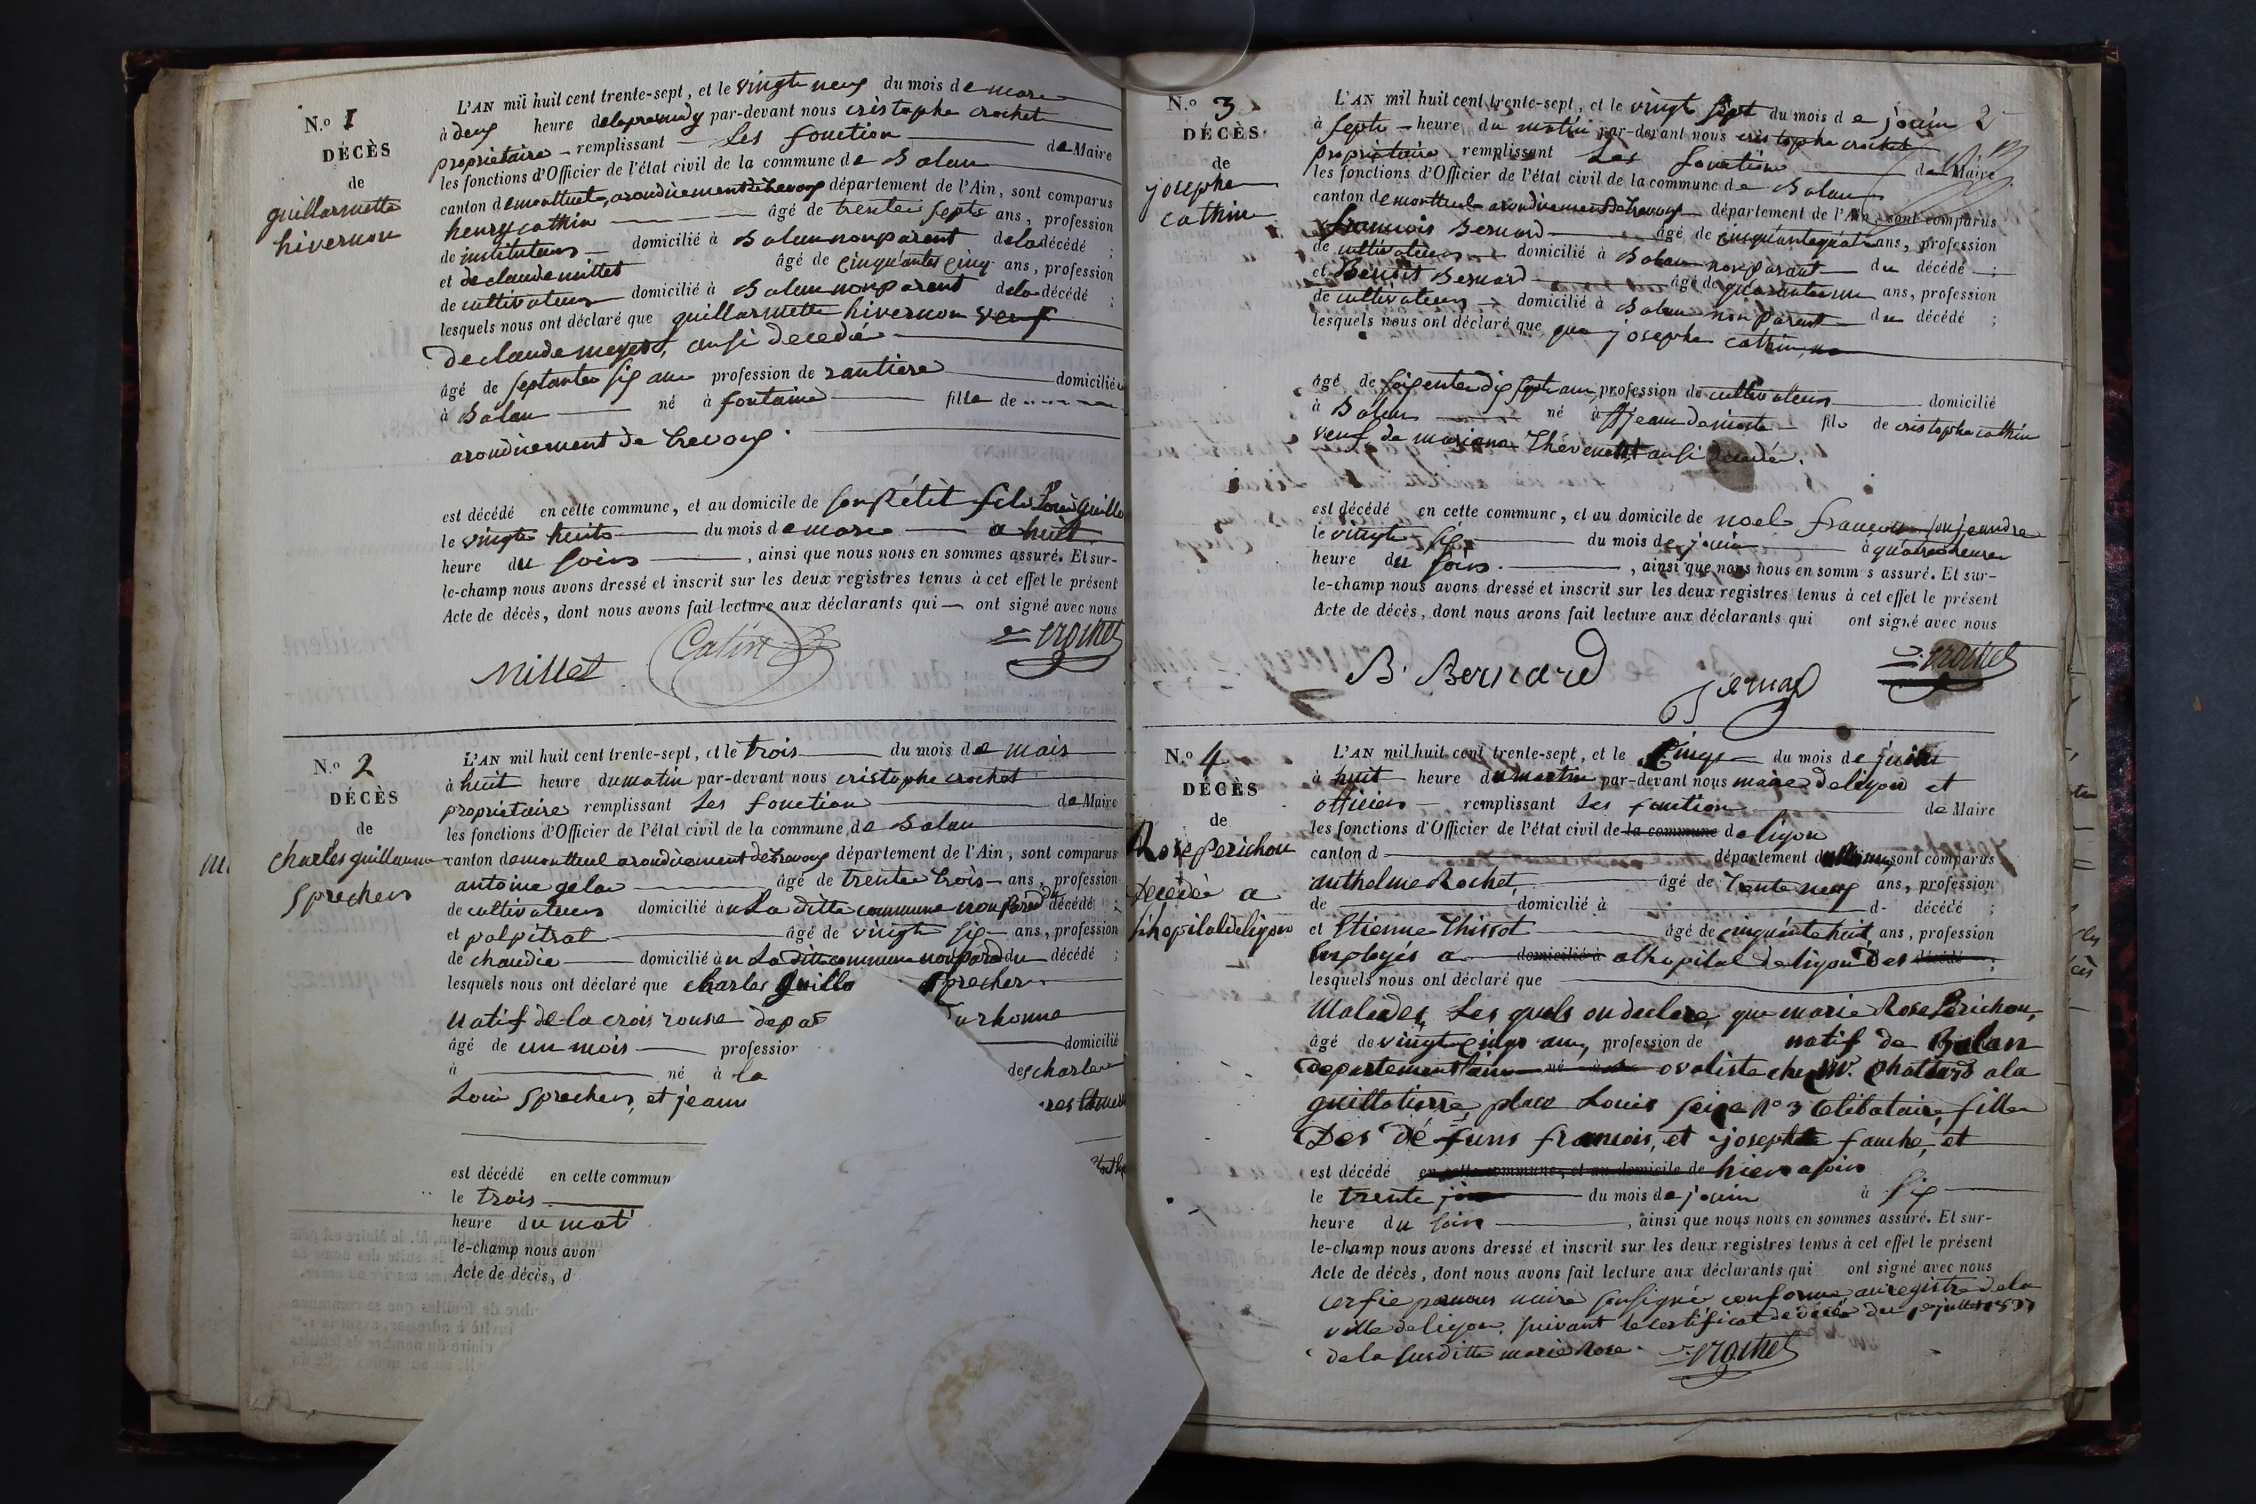 N.o 1
DÉCÈS
de
guillarmette
hivernon
L'AN mil huit cent trente-sept, et le vingte neuf du mois de mars
à deux heure par-devant nous cristophe crochet
propriétaire remplissant Les fonction de Maire
les fonctions d'Officier de l'état civil de la commune de Balan
canton de montluel arondicement de trevoux département de l'Ain, sont comparus
henry cathin âgé de trente septe ans, profession
de instituteur domicilié à Balan non parent de la décédé ;
et de claude millet âgé de cinquante cinq ans, profession
de cultivateur domicilié à Balan non parent de la décédé ;
lesquels nous ont déclaré que guillarmette hivernon veuf
de claude ausi decedé
âgé de septante six ans profession de rantiere domicilié
à Balan né à fontaine fille de
arondicement de trevoux.
est décédé en cette commune, et au domicile de son Pétit fils Louis guille
le vingte huite du mois de mars a huit
heure du soir, ainsi que nous nous en sommes assuré. Et sur-
le-champ nous avons dressé et inscrit sur les deux registres tenus à cet effet le présent
Acte de décès, dont nous avons fait lecture aux déclarants qui ont signé avec nous
Millet Catin crochet
N.o 2
DÉCÈS
de
charles guillaume
sprecher
L'AN mil huit cent trente-sept, et le trois du mois de mais
à huit heure du matin par-devant nous cristophe crochet
propriétaire remplissant Les fonction de Maire
les fonctions d'Officier de l'état civil de la commune de Balan
canton de montluel arondicement de trevoux département de l'Ain, sont comparus
antoine gela âgé de trente trois ans, profession
de cultivateur domicilié à La ditte commune non Parent du décédé ;
et pol pitrat âgé de vingt six ans, profession
de domicilié à La ditte commune non paran du décédé ;
lesquels nous ont déclaré que charles guilla sprecher
Natif de la crois rousse depar durhonne
âgé de un mois profession domicilié
à né à la des charles
Louis sprecher, et jeann
est décédé en cette commun
le trois
heure du mati
le-champ nous avon
Acte de décès, d
N.o 3
DÉCÈS
de
josephe
cathin
L'AN mil huit cent trente-sept, et le vingt sept du mois de jouin 2
à septe heure du matin par-devant nous cristophe crochet
propriétaire remplissant Les fonction de Maire
les fonctions d'Officier de l'état civil de la commune de Balan
canton de montluel arondicement de trevoux département de l'Ain, sont comparus
francois Bernard âgé de cinquante quatre ans, profession
de cultivateur domicilié à Balan non parant du décédé ;
et Benoit Bernard âgé de quarante un ans, profession
de cultivateur domicilié à Balan non parent du décédé ;
lesquels nous ont déclaré que que josephe cathin
âgé de soixente dix septe ans, profession de cultivateur domicilié
à Balan né à jean de nioste fils de cristophe cathin
veuf de mariana Thévenet ausi decedée.
est décédé en cette commune, et au domicile de noel francois son jeandre
le vingte six du mois de jouin à quatre heures
heure du soir, ainsi que nous nous en somm s assuré. Et sur-
le-champ nous avons dressé et inscrit sur les deux registres tenus à cet effet le présent
Acte de décès, dont nous avons fait lecture aux déclarants qui ont signé avec nous
B. Bernard crochet
N.o 4
DÉCÈS
de
Rose Perichon
Décédé a
l'hopital de liyon
L'AN mil huit cent trente-sept, et le Cinq du mois de juillet
à huit heure du matin par-devant nous maire de liyon et
officier remplissant Les fonction de Maire
les fonctions d'Officier de l'état civil de la commune de liyon
canton d département d sont comparus
anthelme Rochet âgé de trente neuf ans, profession
de domicilié à d décédé ;
et Etienne Thissot âgé de cinquante huit ans, profession
Employés a domicilié à alhopital de liyon Des décédé ;
lesquels nous ont déclaré que
Malades, Les quels on declaré, que marie Rose Perichon,
âgé de vingt cinq ans, profession de natif de Balan
departement lain né ovaliste che Mr. Chatard a la
guillotierre, place Louis seize No 3 Célibataire fille
Des défuns francois, et josephte fauché, et
est décédé en cette commune, et au domicile de hier a soir
le trente du mois de jouin à six
heure du soir, ainsi que nous nous en sommes assuré. Et sur-
le-champ nous avons dressé et inscrit sur les deux registres tenus à cet effet le présent
Acte de décès, dont nous avons fait lecture aux déclarants qui ont signé avec nous
cerfie par nous maire sousigné conforme au registre de la
ville de liyon, suivant le certificat de décès du 1er juillet 1837
de la susditte marie Rose. crochet